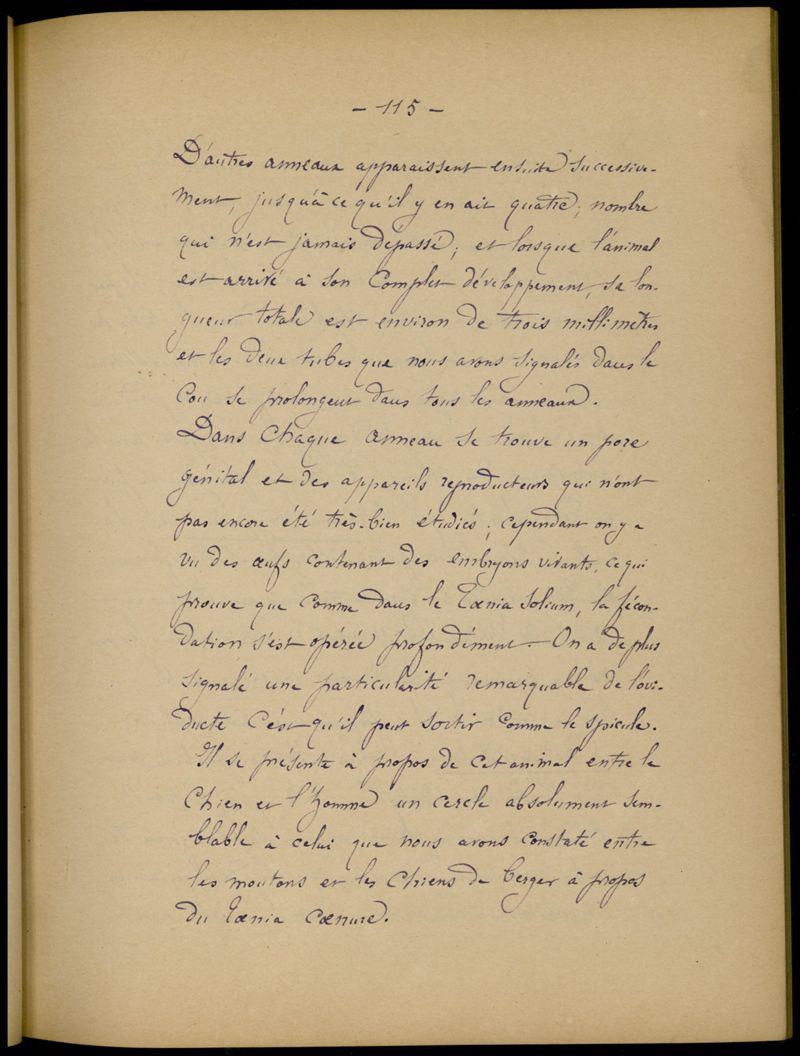 - 115 -
D'autres anneaux apparaissent ensuite successive-
ment, jusqu'à ce qu'il y en ait quatre, nombre
qui n'est jamais dépassé; et lorsque l'animal
est arrivé à son complet développement, sa lon-
gueur totale est environ de trois millimètres
et les deux tubes que nous avons signalés dans le
cou se prolongent dans tous les anneaux.
Dans chaque anneau se trouve un pore
génital et des appareils reproducteurs qui n'ont
pas encore été très-bien étudiés; cependant on y a
vu des œufs contenant des embryons vivants, ce qui
prouve que comme dans le Tœnia Solium, la fécon-
dation s'est opérée profondément. On a de plus
signalé une particularité remarquable de l'ovi-
ducte c'est qu'il peut sortir comme le spicule.
Il se présente à propos de cet animal entre le
Chien et l'homme un cercle absolument sem-
blable à celui que nous avons constaté entre
les moutons et les chiens de berger à propos
du Tœnia Cœnure.